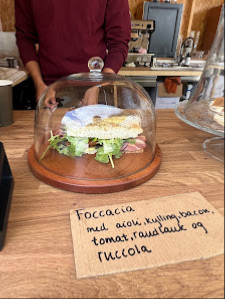 Foccacia
med aioli, kylling, bacon,
tomat, rauslauk og
ruccola